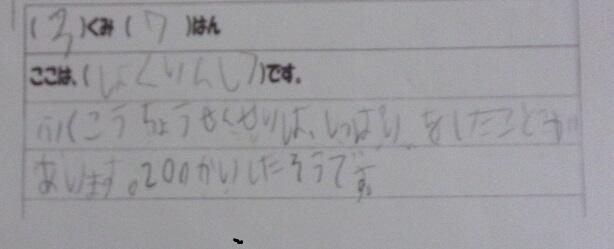 (3)くみ(7)はん
ここは、(しょくいんしつ)です。
ふくこうちょうせんせいは、しっぱい をしたことが
あります。200かいしたそうです。